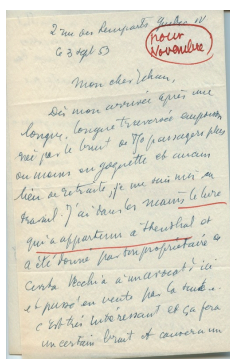 2 rue des Remparts Quebec
le 3 sept 53
pour
Novembre
Mon cher
Dès mon arrivée après une
longue, longue traversée
par le bruit de 750 passagers plus
ou moins en goguette et aucun
lieu de retraite, je me suis mis au
travail. J'ai dans les mains le livre
qui a appartenu à Stendhal et
a été donné par son propriétaire de
Civita Vecchia à un avocat d'ici
et puis en vente par la suite.
C'est très intéressant et ça fera
un certain bruit et